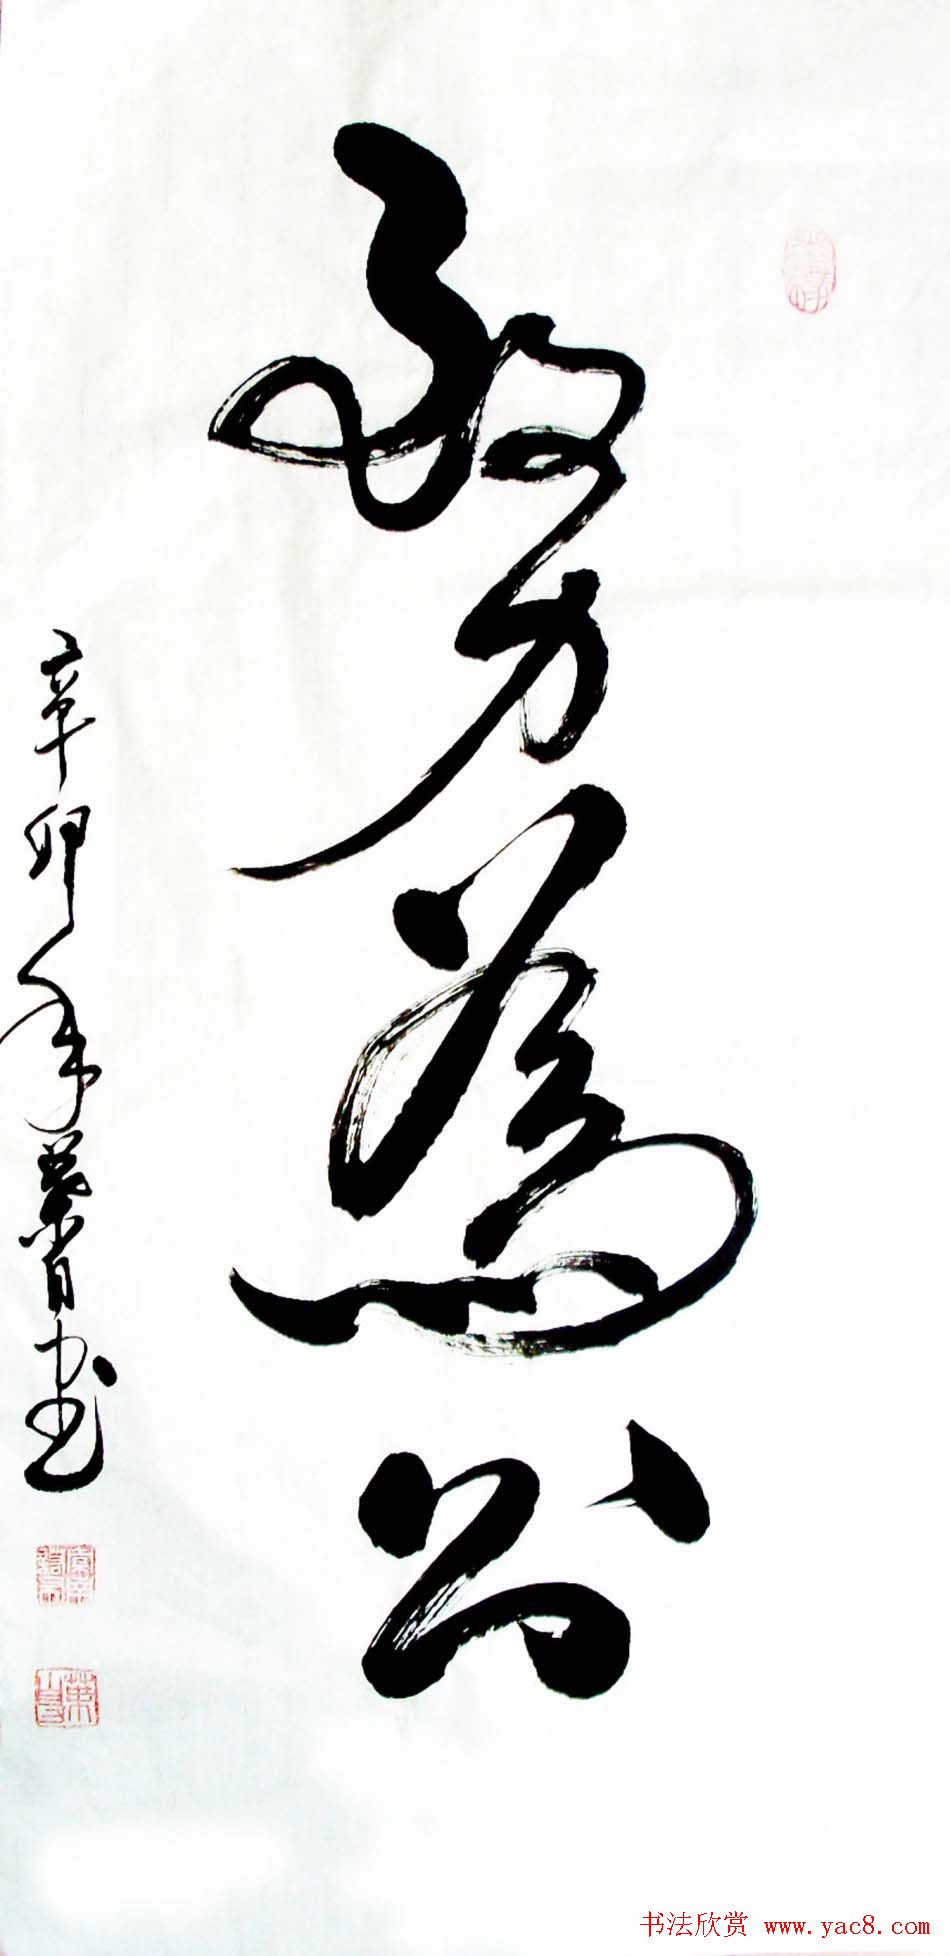 務為公
辛卯年 书
书法欣赏 www.yac8.com